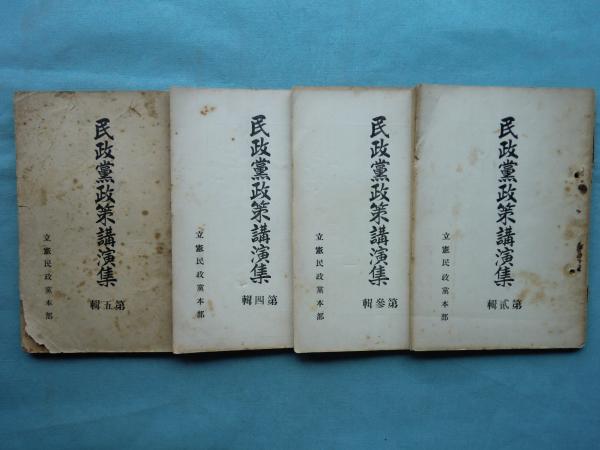 民政黨政策講演集
第貳輯
立憲民政黨本部
民政黨政策講演集
第參輯
立憲民政黨本部
民政黨政策講演集
第四輯
立憲民政黨本部
民政黨政策講演集
第五輯
立憲民政黨本部